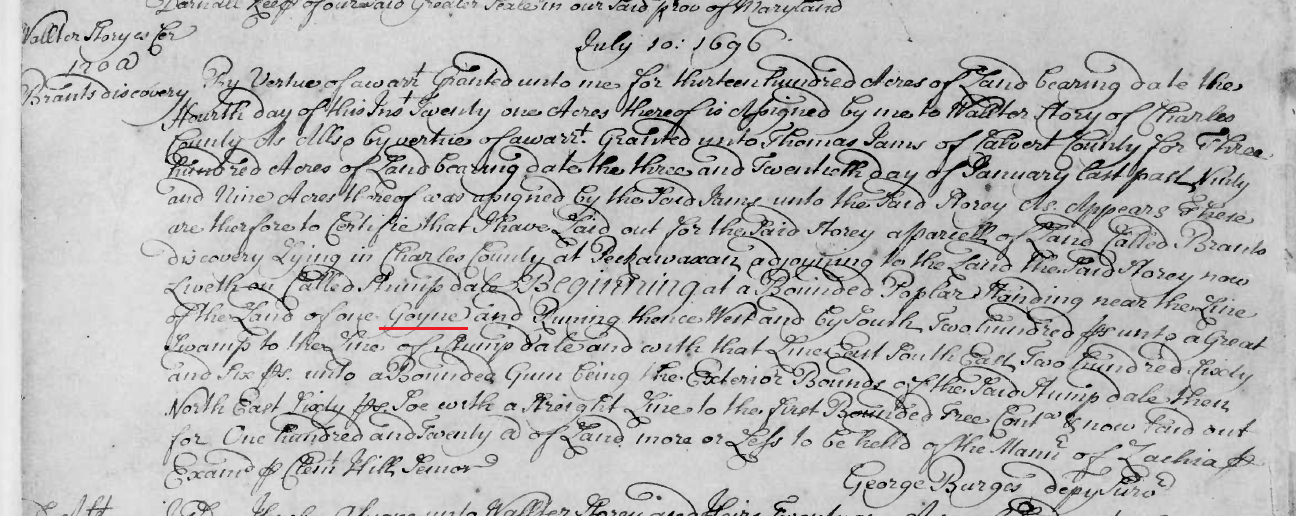 Darnall Keepr of our said Greater Seale in our said prov of Maryland
Wallter Story es Cer
120 a
Brants discovery
July 10: 1696
By Vertue of a warrt. Granted unto me for thirteen hundred Acres of Land bearing date the
Fourth day of this Inst Twenty one Acres thereof is Assigned by me to Wallter Story of Charles
County As Allso by vertue of a warrt. Granted unto Thomas Jams of Calvert County for Three
hundred Acres of Land bearing date the three and Twentieth day of January last past Ninty
and Nine Acres thereof was asigned by the said Jams unto the said Storey As Appears These
are therfore to Certifie that I have Laid out for the said Storey a parsell of Land Called Brants
discovery Lying in Charles County at Peckawaxan adjoyning to the Land the said Storey now
Liveth on Called Stump dale Beginning at a Bounded Poplar Standing near the Line
of the Land of one Goyne and Runing thence West and by South Two hundred ps unto a Great
Swamp to the Line of Stump dale and with that Line East South East Two hundred Sixty
and Six ps. unto a Bounded Gum being the Exterior Bounds of the said Stump dale then
North East Sixty ps Soe with a streight Line to the first Bounded Tree Contg & now Laid out
for One hundred and Twenty a of Land more or Less to be helld of the Mannr of Zachia
Examd p Clemt Hill Senior
George Burges depy Survr
unto Wallter Storey and Heirs